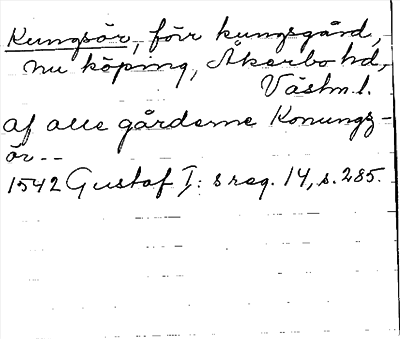 Kungsör, förr kungsgård,
nu köping, Åkerbo hd,
Västm.l.
af alle gårderne Konungz-
ör--
1542 Gustaf I:s reg. 14, s. 285.